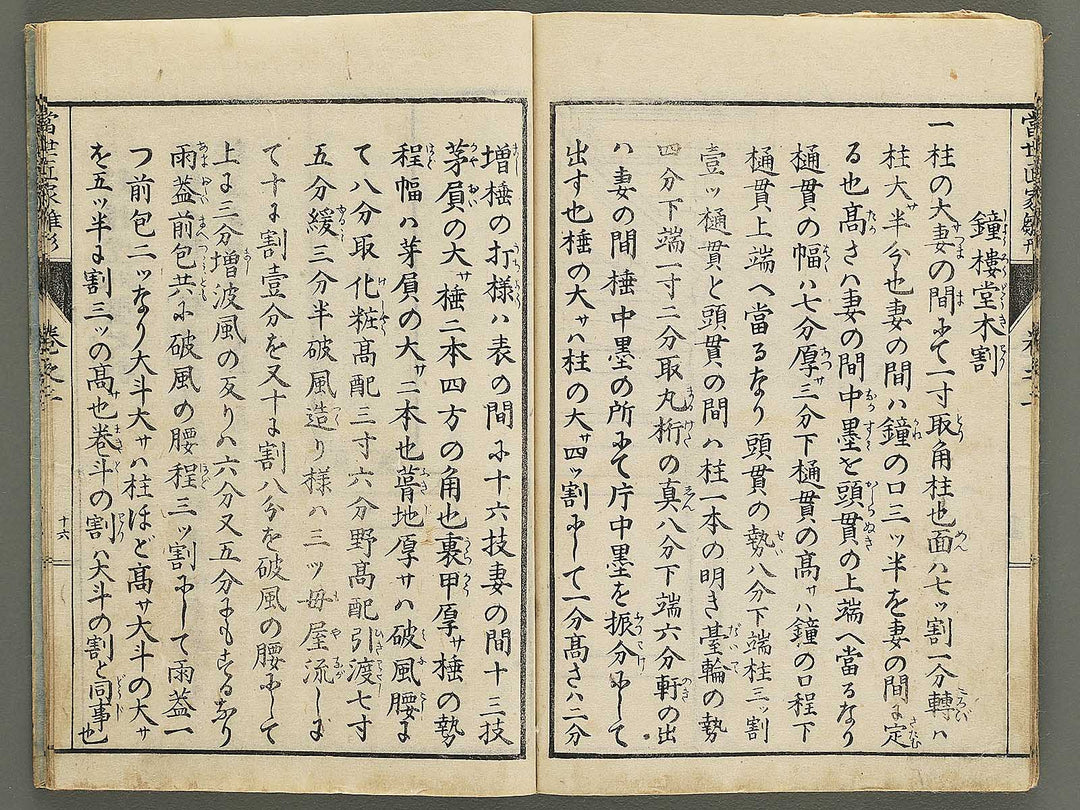 鐘樓堂木割
一柱の大妻の間にて一寸取角柱也面ハ七ッ割一分轉ハ
柱大サ半今也妻の間ハ鐘の口三ッ半を妻の間に定
る也髙さハ妻の間中墨を頭貫の上端へ當るなり
樋貫の幅ハ七分厚サ三分下樋貫の髙サハ鐘の口程下
樋貫上端へ當るなり頭貫の勢八分下端柱三ッ割
壹ッ樋貫と頭貫の間ハ柱一本の明き臺輪の勢
四分下端一寸二分取丸桁の真八分下端六分軒の出
ハ妻の間棰中墨の所にて庁中墨を振分にして
出す也棰の大サハ柱の大サ四ッ割にして一分髙さハ二分
増棰の打様ハ表の間に十六技妻の間十三技
茅負の大サ棰二本四方の角也裏甲厚サ棰の勢
程幅ハ茅負の大サ二本也葺地厚サハ破風腰に
て八分取化粧髙配三寸六分野髙配引渡七寸
五分緩三分半破風造り様ハ三ッ毋屋流しに
て十に割壹分を又十に割八分を破風の腰にして
上に三分増波風の反りハ六分又五分にもするなり
雨葢前包共に破風の腰程三ッ割にして雨葢一
つ前包二ッなり大斗大サハ柱ほど髙サ大斗の大サ
を五ッ半に割三ッの髙サ也卷斗の割ハ大斗の割と同事也
十六